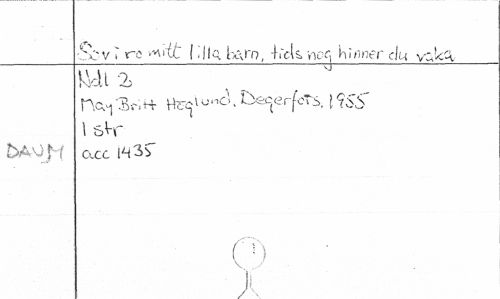 Sov i ro mitt lilla barn, tids nog hinner du vaka
Ndl 2
May Britt Höglund, Degerfors, 1955
1 str
DAUM acc 1435